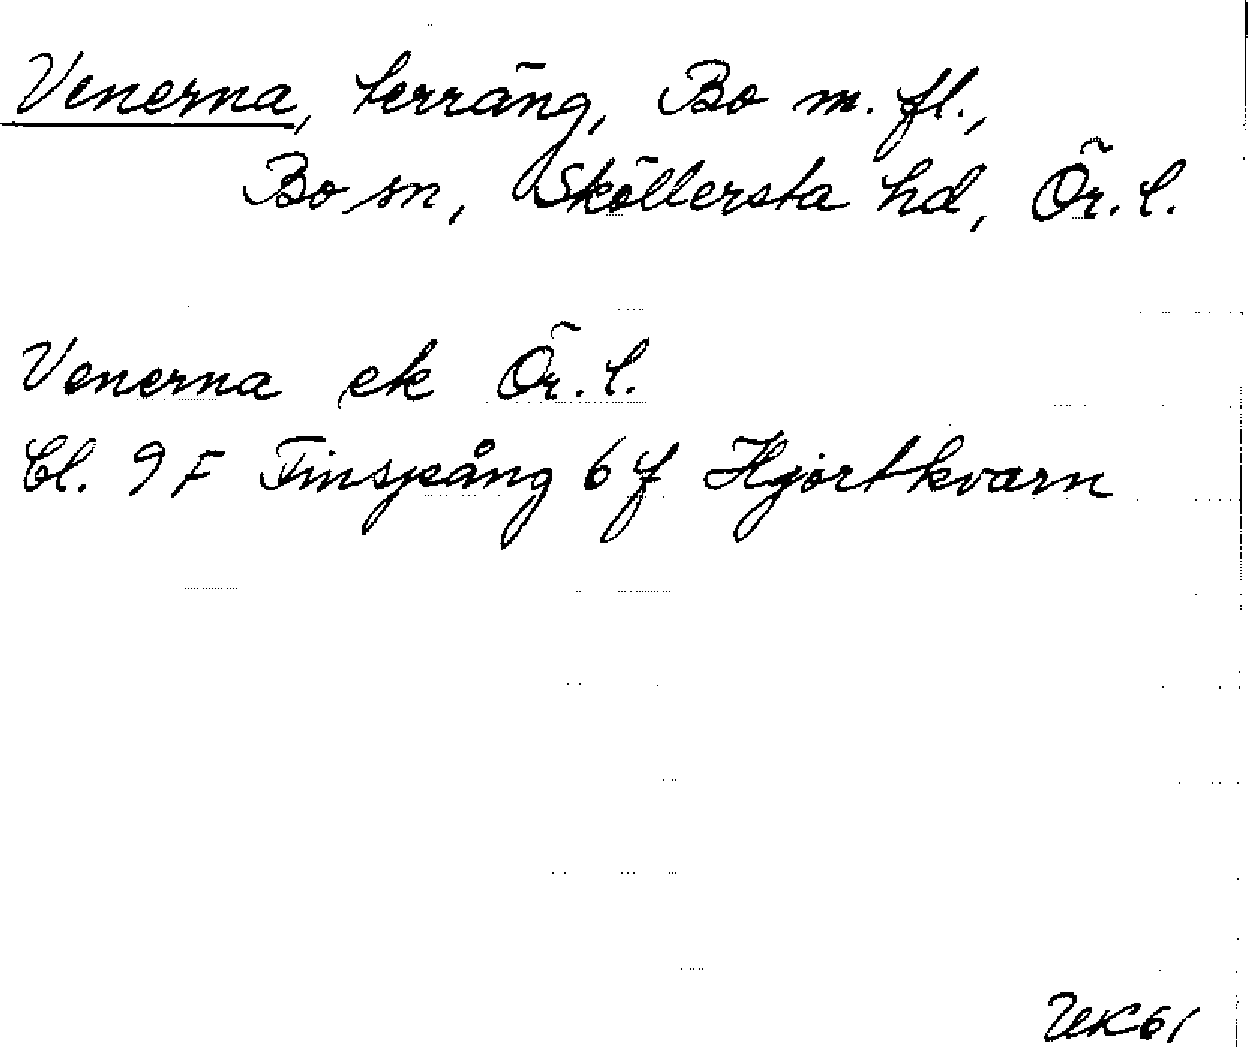 Venerna, terräng, Bo m. fl.,
Bo sn, Sköllersta hd, Ör. l.
Venerna ek Ör. l.
Bl. 9 F Finspång 6 f Hjortkvarn
UK61